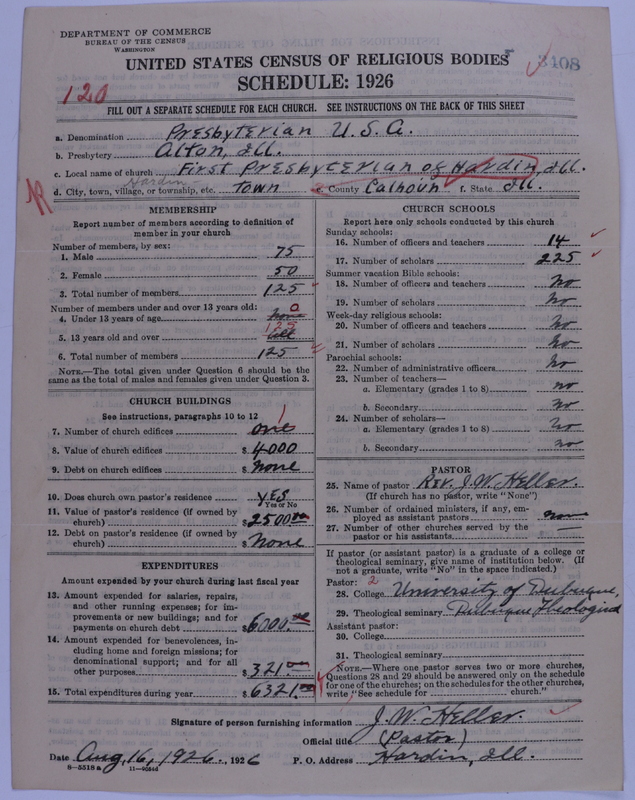 DEPARTMENT OF COMMERCE
BUREAU OF THE CENSUS
WASHINGTON
UNITED STATES CENSUS OF RELIGIOUS BODIES
3408
SCHEDULE: 1926
120
FILL OUT A SEPARATE SCHEDULE FOR EACH CHURCH. SEE INSTRUCTIONS ON THE BACK OF THIS SHEET
a. Denomination Presbyterian U.S.A.
b. Presbytery Alton, Ill.
c. Local name of church First Presbyterian of Hardin, Ill.
Hardin
d. City, town, village, or township, etc. Town e. County Calhoun f. State Ill.
MEMBERSHIP
Report number of members according to definition of
member in your church
Number of members, by sex:
1. Male 75
2. Female 50
3. Total number of members 125
Number of members under and over 13 years old:
4. Under 13 years of age None 0
5. 13 years old and over All 125
6. Total number of members 125
NOTE.—The total given under Question 6 should be
same as the total of males and females given under Question 3.
CHURCH BUILDINGS
See instructions, paragraphs 10 to 12
7. Number of church edifices one 1
8. Value of church edifices $ 4000
9. Debt on church edifices $ None
10. Does church own pastor's residence Yes
Yes or No
11. Value of pastor's residence (if owned by
church) $ 2500.00
12. Debt on pastor's residence (if owned by
church) $ None
EXPENDITURES
Amount expended by your church during last fiscal year
13. Amount expended for salaries, repairs,
and other running expenses; for im-
provements or new buildings; and for
payments on church debt $ 6000.00
14. Amount expended for benevolences, in-
cluding home and foreign missions; for
denominational support; and for all
other purposes $ 321.00
15. Total expenditures during year $ 6321.00
CHURCH SCHOOLS
Report here only schools conducted by this church
Sunday schools:
16. Number of officers and teachers 14
17. Number of scholars 225
Summer vacation Bible schools:
18. Number of officers and teachers No
19. Number of scholars No
Week-day religious schools:
20. Number of officers and teachers No
21. Number of scholars No
Parochial schools:
22. Number of administrative officers No
23. Number of teachers—
a. Elementary (grades 1 to 8) No
b. Secondary No
24. Number of scholars—
a. Elementary (grades 1 to 8) No
b. Secondary No
PASTOR
25. Name of pastor Rev. J.W. Heller.
(If church has no pastor, write "None")
26. Number of ordained ministers, if any, em-
ployed as assistant pastors none
27. Number of other churches served by the
pastor or his assistants
If pastor (or assistant pastor) is a graduate of a college or
theological seminary, give name of institution below. (If
not a graduate, write "No" in the space indicated.)
Pastor: 2
28. College University of Dubuque,
29. Theological seminary Dubuque Theological
Assistant pastor:
30. College
31. Theological seminary
NOTE.—Where one pastor serves two or more churches,
Questions 28 and 29 should be answered only on the schedule
for one of the churches; on the schedules for the other churches,
write "See schedule for church."
Signature of person furnishing information J.W. Heller.
Official title (Pastor)
Date Aug, 16, 1926., 1926 P. O. Address Hardin, Ill.